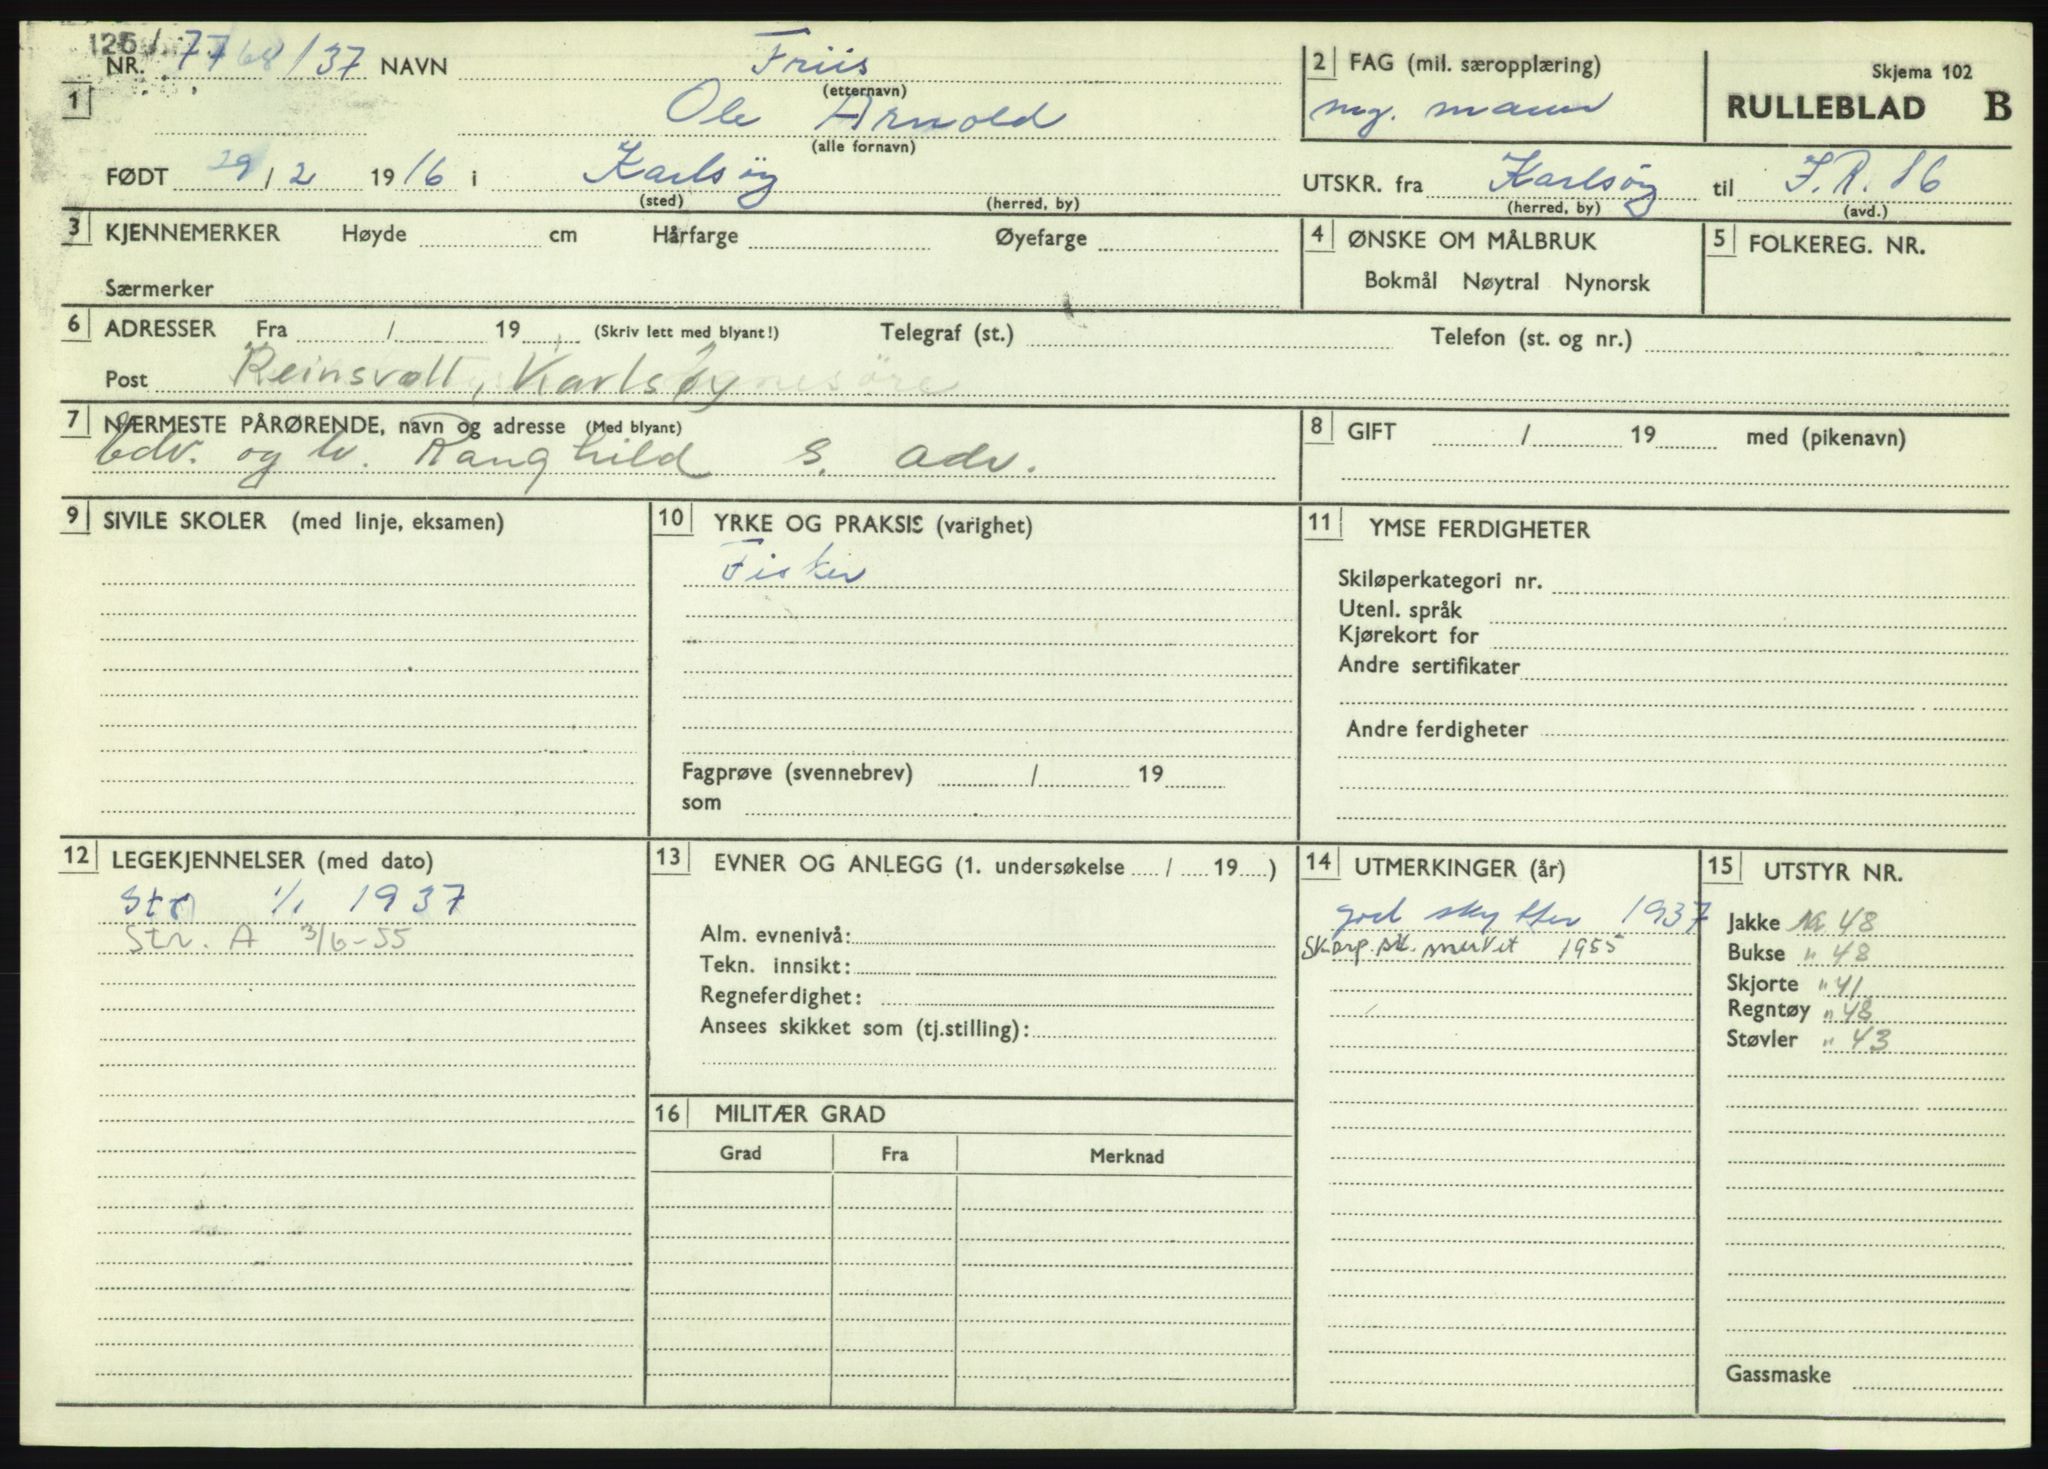 126/ 7768/37 NR. NAVN Friis (etternavn)
1 Ole Arnold (alle fornavn)
FØDT 29/2 1916 i Karlsøy (sted) (herred, by)
2 FAG (mil. særopplæring) mg. mann
Skjema 102
RULLEBLAD B
UTSKR. fra Karlsøy (herred, by) til I.R. 16 (avd.)
3 KJENNEMERKER Høyde cm Hårfarge Øyefarge
Særmerker
4 ØNSKE OM MÅLBRUK
Bokmål Nøytral Nynorsk
5 FOLKEREG. NR.
6 ADRESSER Fra / 19 (Skriv lett med blyant!) Telegraf (st.) Telefon (st. og nr.)
Post Reinsvoll, Karlsøy
7 NÆRMESTE PÅRØRENDE, navn og adresse (Med blyant)
Edv. og h. Ranghild s. adr.
8 GIFT / 19 med (pikenavn)
9 SIVILE SKOLER (med linje, eksamen)
10 YRKE OG PRAKSIS (varighet)
Fisker
Fagprøve (svennebrev) / 19
som
11 YMSE FERDIGHETER
Skiløperkategori nr.
Utenl. språk
Kjørekort for
Andre sertifikater
Andre ferdigheter
12 LEGEKJENNELSER (med dato)
Str 1/1 1937
Str. A 3/6-55
13 EVNER OG ANLEGG (1. undersøkelse / 19 )
Alm. evnenivå:
Tekn. innsikt:
Regneferdighet:
Ansees skikket som (tj.stilling):
14 UTMERKINGER (år)
god skytter 1937
Skarp sk. merket 1955
15 UTSTYR NR.
Jakke Nr 48
Bukse " 48
Skjorte " 41
Regntøy " 48
Støvler " 43
Gassmaske
16 MILITÆR GRAD
Grad Fra Merknad